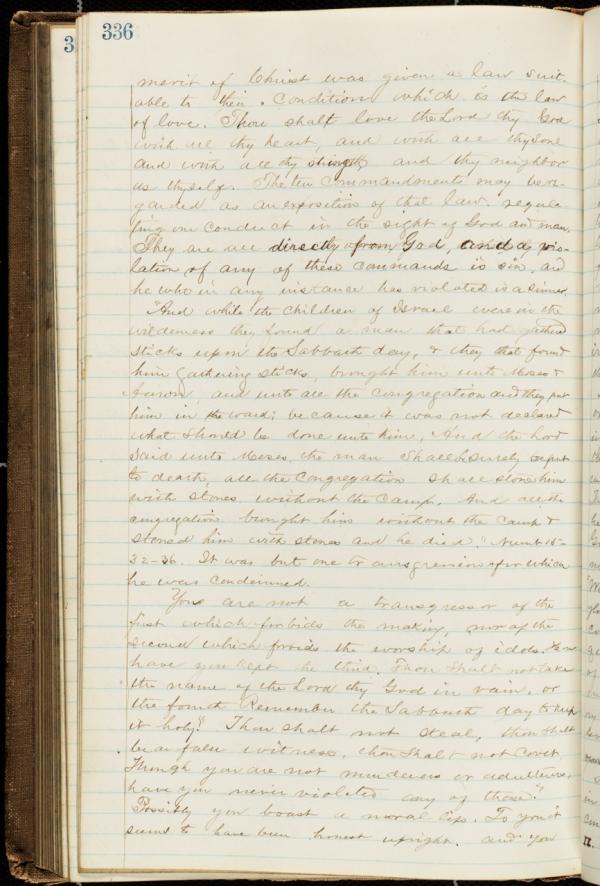 336
3
merit of Christ was given a law suit-
able to their condition which is the law
of love. Thou shalt love the Lord thy God
with all thy heart, and with all thy soul
and with all thy strength and thy neighbor
as thyself. The ten commandments may be re-
garded as an exposition of that law, regula-
ting our conduct in the sight of God and man.
They are all directly from God, and a vio-
lation of any of these commands is sin, and
he who in any instance has violated is a sinner.
"And while the children of Israel were in the
wilderness they found a man that had gathered
sticks upon the Sabbath day, & they that found
him gathering sticks, brought him unto Moses &
Aaron, and unto all the congregation and they put
him in the ward; because it was not declared
what should be done unto him, And the Lord
said unto Moses, the man shall be surely put
to death, all the congregation shall stone him
with stones without the camp. And all the
congregation brought him without the camp &
stoned him with stones and he died." Numb 15-
32-36. It was but one transgression for which
he was condemned.
You are not a transgressor of the
first which forbids the making, nor of the
second which forbids the worship of idols.
have you kept the third. Thou shalt not take
the name of the Lord thy God in vain. or
the fourth Remember the Sabbath day to keep
it holy." Thou shalt not steal, thou shalt
bear false witness, thou shalt not covet.
Though you are not murderers or adulterers,
have you never violated any of these?"
Possibly you boast a moral life. To you it
seems to have been honest upright. and you